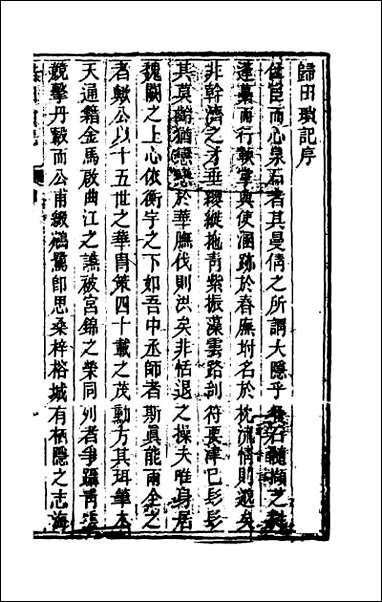 歸田瑣記序
仕宦而心泉石者其曼倩之所謂大隱乎餐石髓擷之
蓬藁而行軟掌與使溷跡於春廡坿名於枕流情則逖矣
非幹濟之才垂纓縰拖靑紫振藻雲路剖符要津已髟髟
其莫齡猶戀戀於華膴伐則洪矣非恬退之操夫唯身居
魏闕之上心依衡宇之下如吾中丞師者斯眞能兩全之
者歟公以十五世之華胄策四十載之茂勳方其珥筆木
天通籍金馬啟曲江之讌被宮錦之榮同列者爭躡靑
競擊丹轂而公甫綴鵷鷺卽思桑梓榕城有栖隱之志海